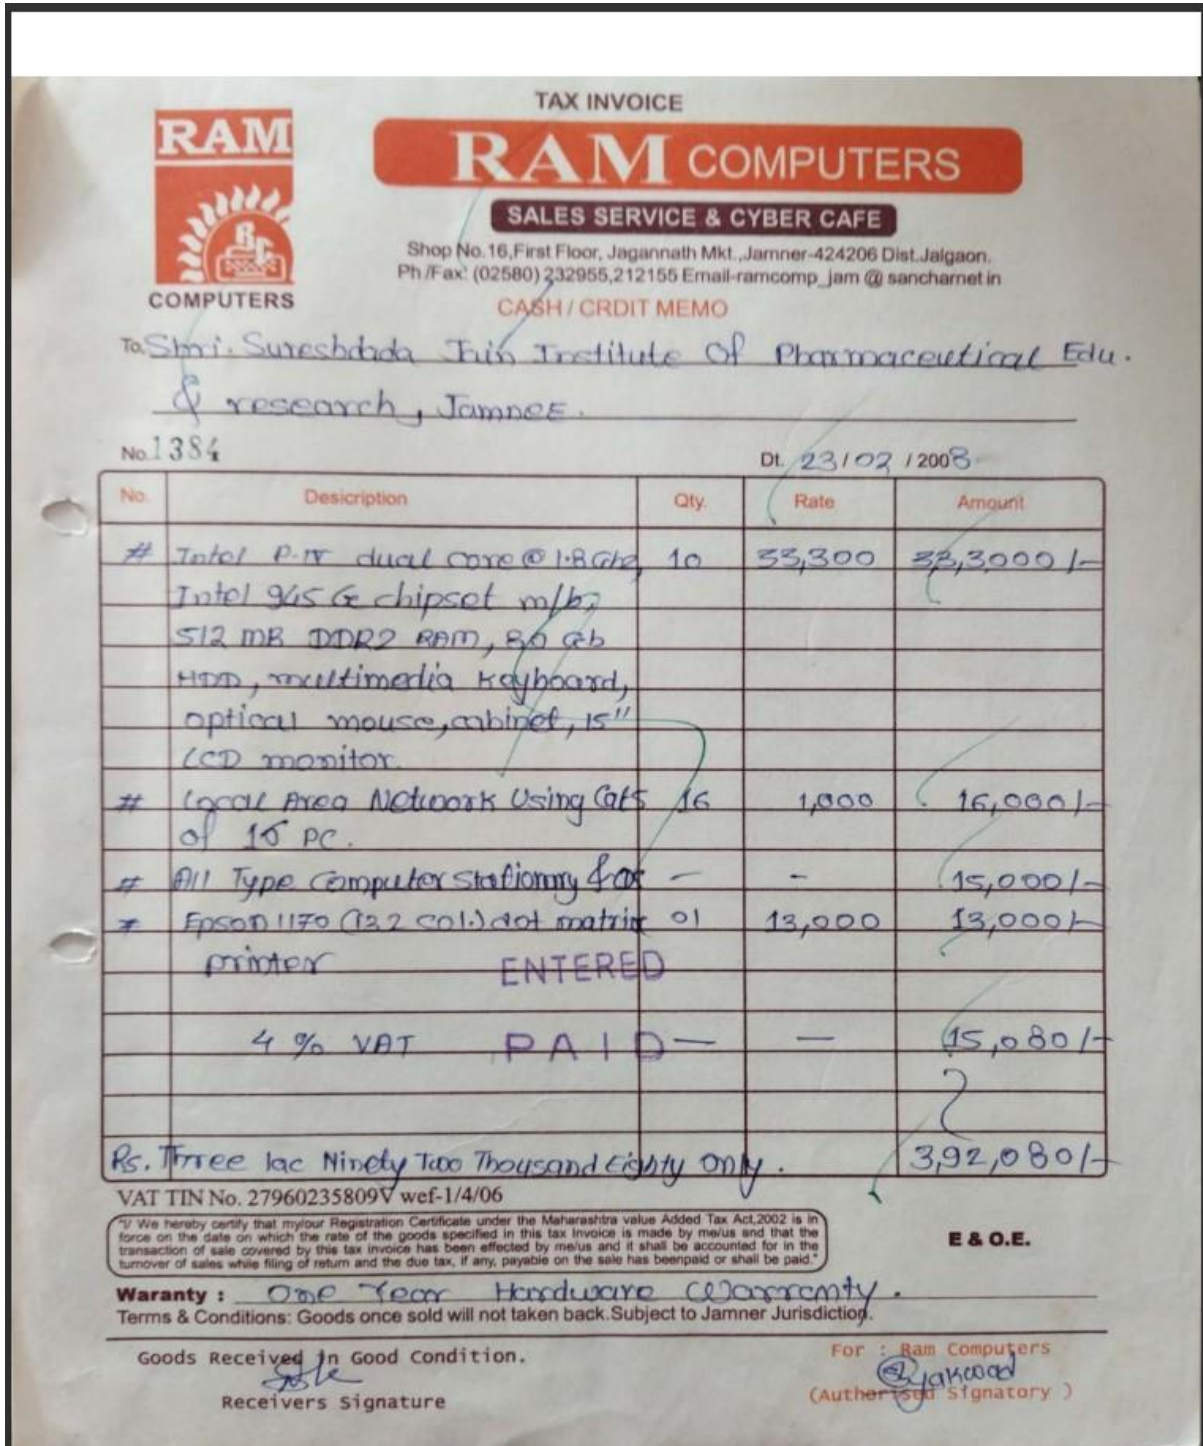 TAX INVOICE
RAM
RAM COMPUTERS
SALES SERVICE & CYBER CAFE
Shop No.16,First Floor, Jagannath Mkt.,Jamner-424206 Dist.Jalgaon.
Ph /Fax: (02580) 232955,212155 Email-ramcomp_jam @ sancharnet.in
COMPUTERS
CASH / CRDIT MEMO
To, Shri. Sureshdada Jain Institute Of Pharmaceutical Edu.
& research, Jamner.
No. 1384
Dt. 23/02/2008
No. Desicription Qty. Rate Amount
# Intel P-IV dual core @ 1.8 Ghz, 10 33,300 33,3000/-
Intel 945 G chipset m/b,
512 MB DDR2 RAM, 80 Gb
HDD, multimedia Keyboard,
optical mouse, cabinet, 15"
LCD monitor.
# Local Area Network Using Cat5 16 1,000 16,000/-
of 15 PC.
# All Type Computer Stationny for - - 15,000/-
# Epson 1170 (132 col.) dot matrix 01 13,000 13,000/-
printer ENTERED
4 % VAT PAID — — 15,080/-
Rs. Three lac Ninety Two Thousand Eighty Only. 3,92,080/-
VAT TIN No. 27960235809V wef-1/4/06
"I/ We hereby certify that my/our Registration Certificate under the Maharashtra value Added Tax Act,2002 is in
force on the date on which the rate of the goods specified in this tax Invoice is made by me/us and that the
transaction of sale covered by this tax invoice has been effected by me/us and it shall be accounted for in the
turnover of sales while filing of return and the due tax, if any, payable on the sale has beenpaid or shall be paid."
E & O.E.
Waranty : One Year Hardware Warrenty.
Terms & Conditions: Goods once sold will not taken back.Subject to Jamner Jurisdiction.
Goods Received In Good Condition.
For : Ram Computers
Receivers Signature
(Authorised Signatory )